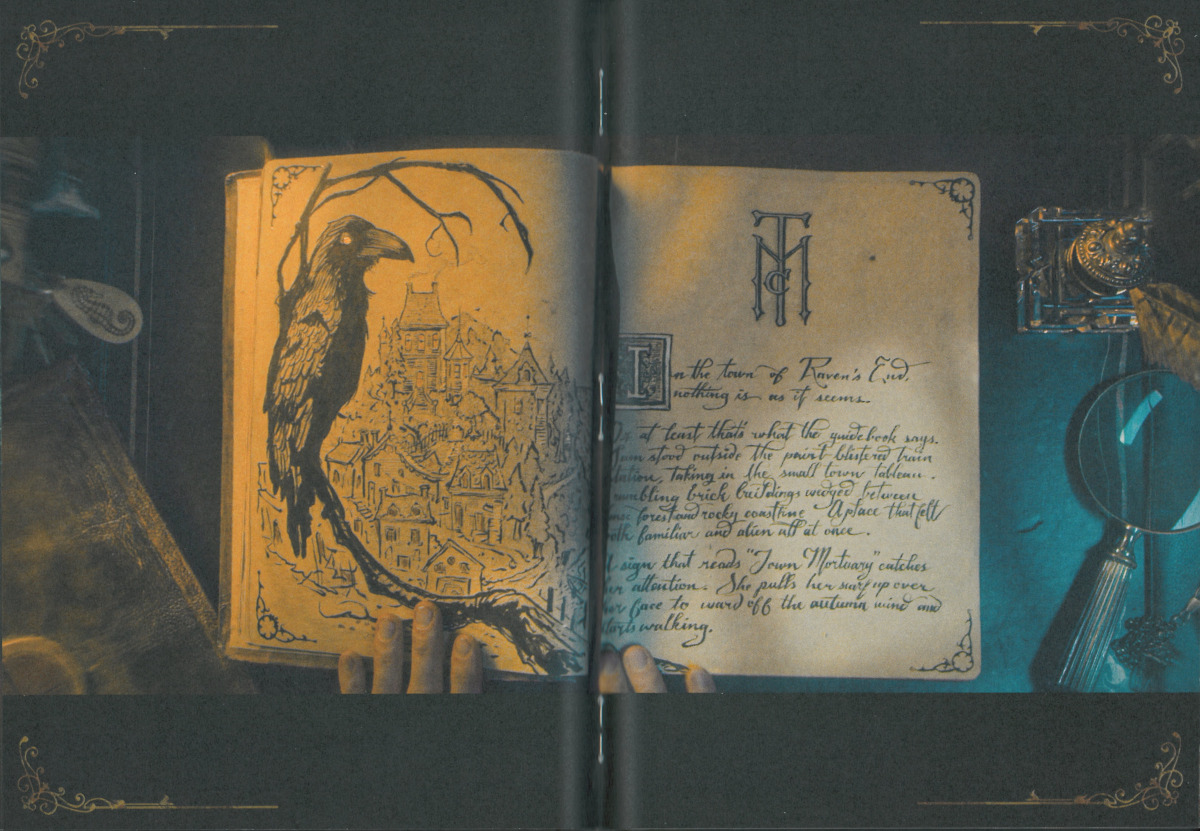 TMC
In the town of Raven's End,
nothing is as it seems.
Or at least that's what the guidebook says.
stood outside the paint blistered train
taking in the small town tableau.
brick buildings wedged between
forest and rocky coastline. A place that felt
both familiar and alien all at once.
A sign that reads "Town Mortuary" catches
her attention. She pulls her scarf up over
her face to ward off the autumn wind and
starts walking.